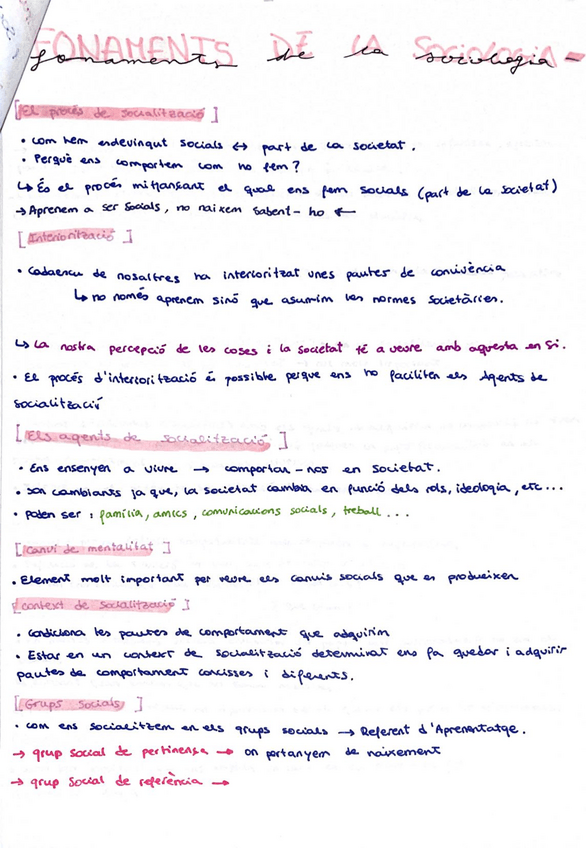 FONAMENTS DE LA SOCIOLOGIA -
fonaments de la sociologia -
[El procés de socialització]
• com hem esdevingut socials ↔ part de la societat.
• Perquè ens comportem com ho fem?
↳ És el procés mitjançant el qual ens fem socials (part de la societat)
→ Aprenem a ser socials, no naixem sabent-ho ←
[Interiorització]
• Cadascu de nosaltres ha interioritzat unes pautes de convivència
↳ no només aprenem sinó que assumim les normes societàries.
↳ La nostra percepció de les coses i la societat té a veure amb aquesta en si.
• El procés d'interiorització és possible perque ens ho faciliten els Agents de
socialització
[Els agents de socialització]
• Ens ensenyen a viure → comportar-nos en societat.
• son cambiants ja que, la societat cambia en funció dels rols, ideologia, etc...
• Poden ser: família, amics, comunicacions socials, treball...
[Canvi de mentalitat]
• Element molt important per veure els canvis socials que es produeixen
[context de socialització]
• condiciona les pautes de comportament que adquirim
• Estar en un context de socialització determinat ens fa quedar i adquirir
pautes de comportament concisses i diferents.
[Grups socials]
• com ens socialitzem en els grups socials → Referent d'Aprenentatge.
→ grup social de pertinença → on portanyem de naixement
→ grup social de referència →